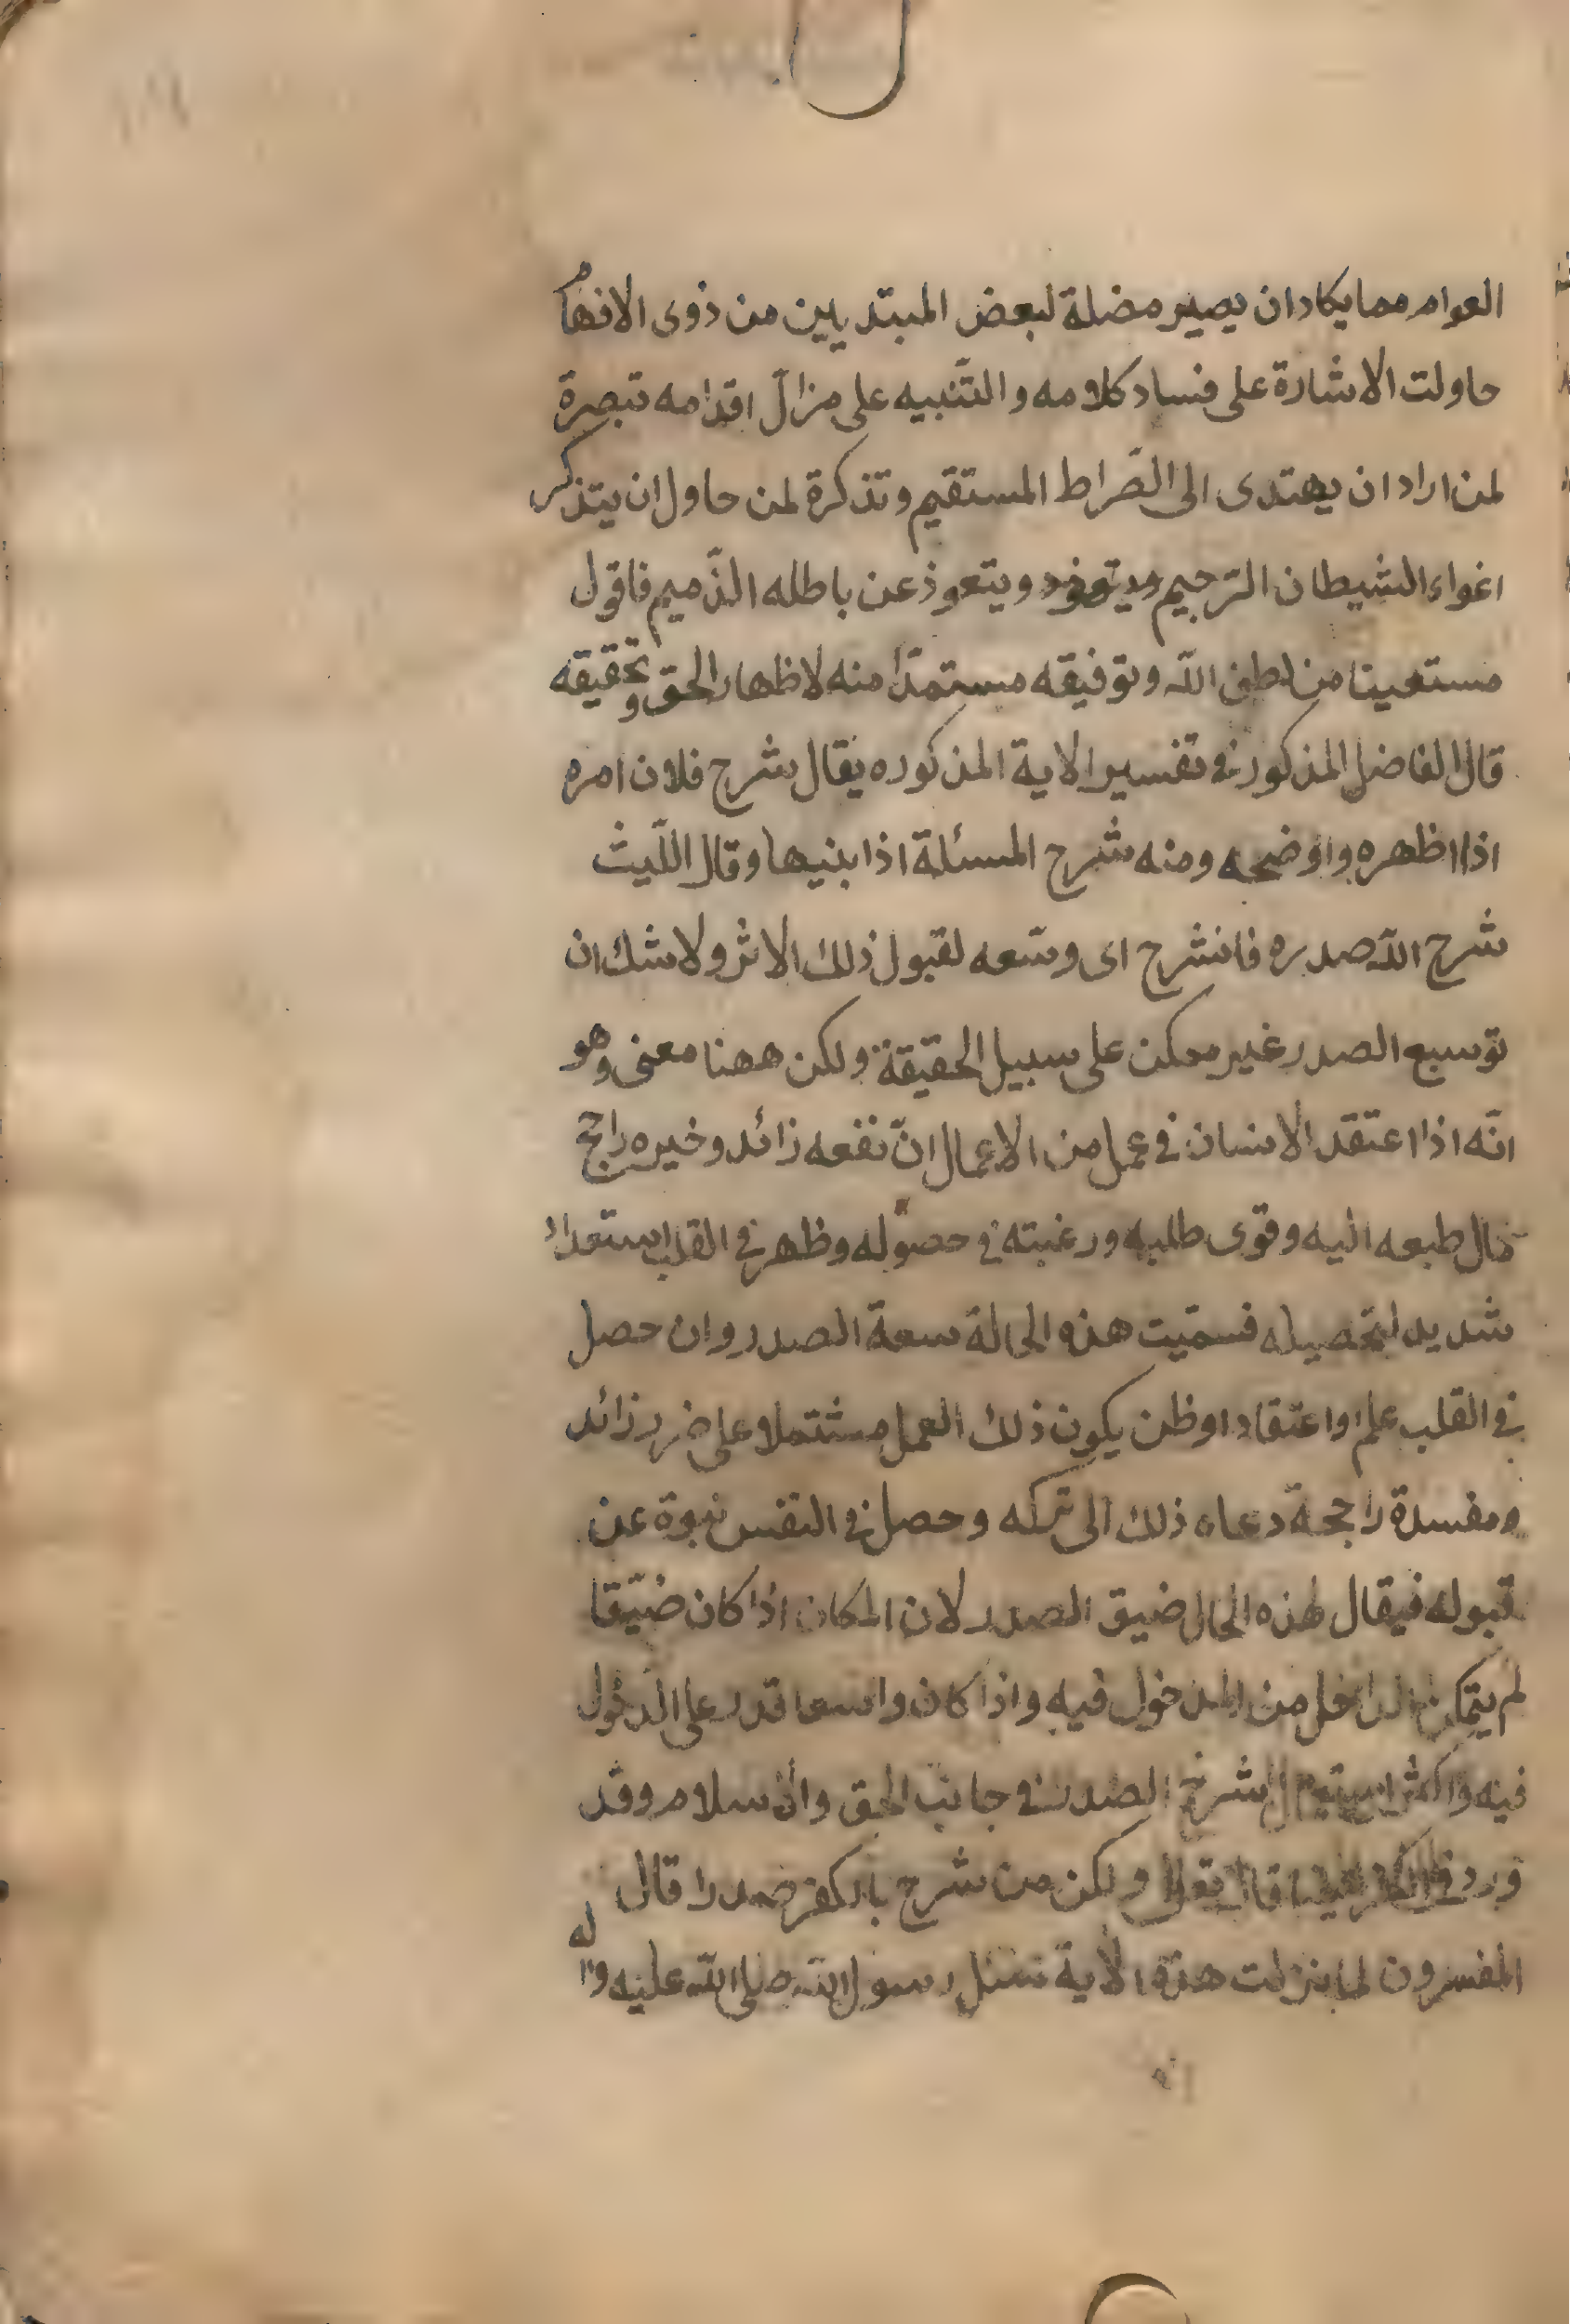 العوام مما يكاد ان يصير مضلة لبعض المبتديين من ذوى الافهام
حاولت الاشارة على فساد كلامه والتّنبيه على مزالّ اقدامه تبصرة
لمن اراد ان يهتدى الى الصّراط المستقيم وتذكرة لمن حاول ان يتذكر
اغواء الشيطان الرّجيم ويتعوذ عن باطله الذّميم فاقول
مستعينا من لطف اللّه وتوفيقه مستمدّا منه لاظهار الحق وتحقيقه
قال الفاضل المذكور فى تفسير الاية المذكوره يقال شرح فلان امره
اذا اظهره واوضحه ومنه شرح المسئلة اذا بنيها وقال اللّيث
شرح اللّه صدره فانشرح اى وسّعه لقبول ذلك الاثر ولا شك ان
توسيع الصدر غير ممكن على سبيل الحقيقة ولكن ههنا معنى وهو
انّه اذا اعتقد الانسان فى عمل من الاعمال انّ نفعه زائد وخيره راجح
مال طبعه اليه وقوى طلبه ورغبته فى حصوله وظهر فى القلب استعداد
شديد لتحصيله فسمّيت هذه الحالة سعة الصدر وان حصل
فى القلب علم او اعتقاد او ظن يكون ذلك العمل مشتملا على ضرر زائد
ومفسدة راجحة دعاه ذلك الى تركه وحصل فى النفس نبوة عن
قبوله فيقال لهذه الحال ضيق الصدر لان المكان اذا كان ضيّقا
لم يتمكن الداخل من الدخول فيه واذا كان واسعا قدر على الدّخول
فيه واكثر استعمال شرح الصدر فى جانب الحق والاسلام وقد
ورد فى الكفر ايضا قال تعالى ولكن من شرح بالكفر صدرا قال
المفسرون لما نزلت هذه الاية سئل رسول اللّه صلى اللّه عليه واله